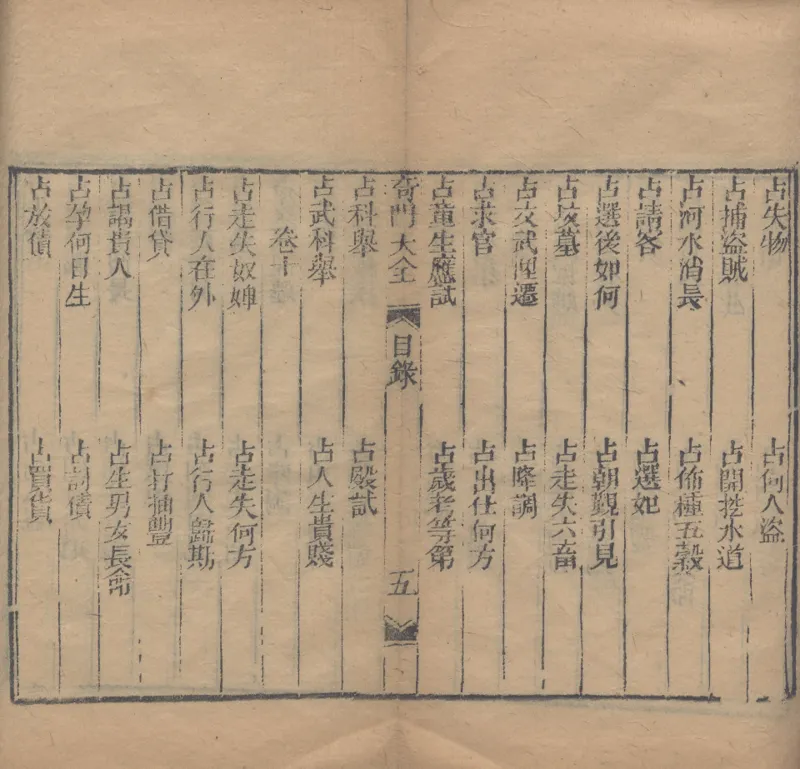 占失物　占何人盜
占捕盜賊　占開挖水道
占河水消長　占佈種五穀
占請客　占選妃
占選後如何　占朝覲引見
占墳墓　占走失六畜
占文武陞遷　占降調
占求官　占出仕何方
占童生應試　占歲考等第
奇門大全　目錄　五
占科舉　占殿試
占武科舉　占人生貴賤
卷十
占走失奴婢　占走失何方
占行人在外　占行人歸期
占借貸　占打抽豐
占謁貴人　占生男女長命
占孕何日生　占討債
占放債　占買貨